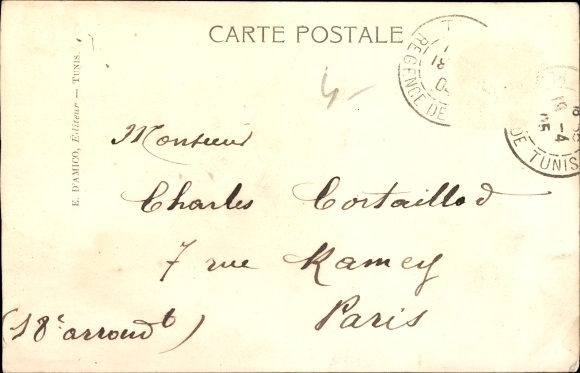 CARTE POSTALE
E. D'AMICO, Editeur — TUNIS.
REGENCE DE
DE TUNIS
19 -4
05
4-
Monsieur
Charles Cortaillod
7 rue Ramey
Paris
(18e arrondt)